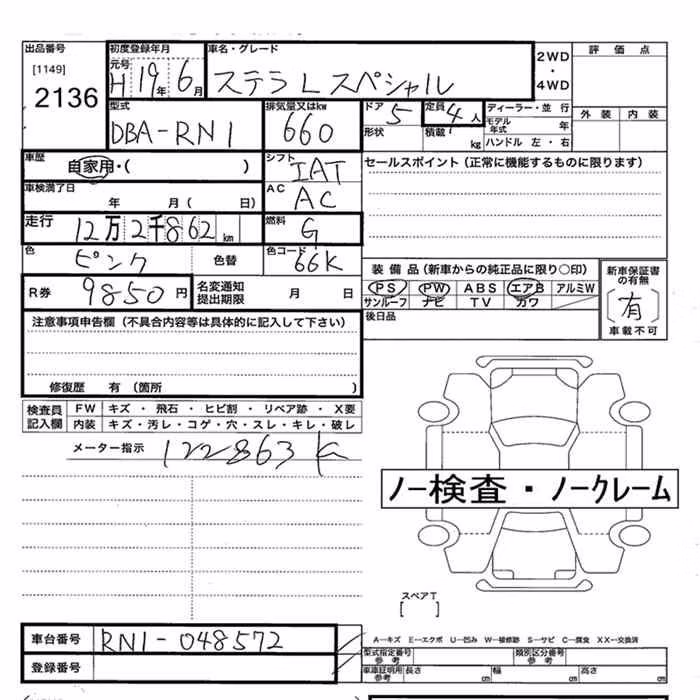 出品番号 初度登録年月 車名・グレード 2WD・4WD 評価点
[1149] 元号
2136 H 19年 6月 ステラ L スペシャル
外装 内装
型式 排気量又はkw ドア 定員 ディーラー・並行
DBA-RN1 660 5 4人 モデル年式 年
形状 積載 kg ハンドル 左・右
車歴 自家用・( ) シフト IAT セールスポイント(正常に機能するものに限ります)
車検満了日 年 月( 日) AC AC
走行 12万2千862km 燃料 G
色 ピンク 色替 色コード 66K
装備品(新車からの純正品に限り○印) 新車保証書の有無
R券 9850円 名変通知提出期限 月 日 PS PW ABS エアB アルミW [有]
サンルーフ ナビ TV カワ 車載不可
注意事項申告欄(不具合内容等は具体的に記入して下さい) 後日品
修復歴 有(箇所 )
検査員記入欄 FW キズ・飛石・ヒビ割・リペア跡・X要
内装 キズ・汚レ・コゲ・穴・スレ・キレ・破レ
メーター指示 122863 K
ノー検査・ノークレーム
スペアT
[ ]
車台番号 RN1-048572 A―キズ E―エクボ U―凹み W―補修跡 S―サビ C―腐食 XX―交換済
登録番号 型式指定番号参考 類別区分番号参考
車庫証明用参考 長さ cm 幅 cm 高さ cm